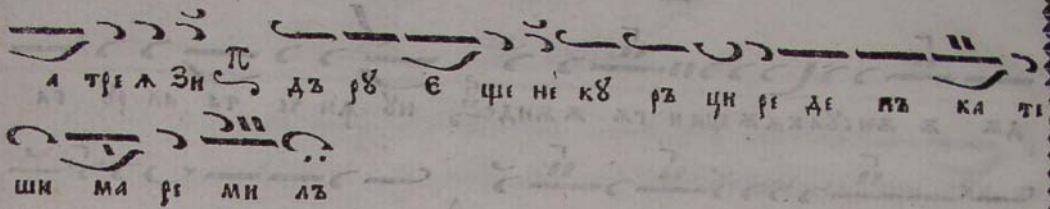 а тре ѧ зи π дъ рꙋ є ще не́ кꙋ ръ ци ре де пъ ка те
ши ма ре ми лъ